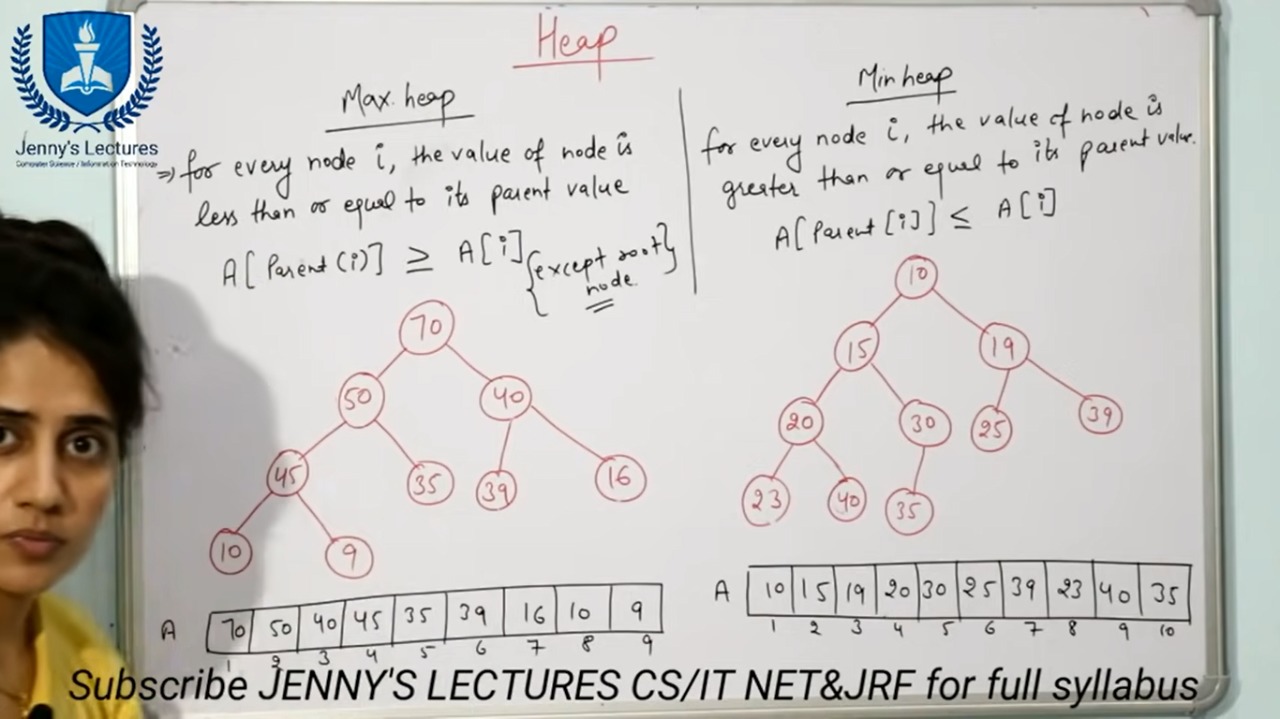 Jenny's Lectures
Computer Science / Information Technology
Heap
Max. heap
⇒ for every node i, the value of node is
less than or equal to its parent value
A[Parent(i)] ≥ A[i]
{except root
node.}
70
50 40
45 35 39 16
10 9
A 70 50 40 45 35 39 16 10 9
1 2 3 4 5 6 7 8 9
Min heap
for every node i, the value of node is
greater than or equal to its parent value.
A[Parent[i]] ≤ A[i]
10
15 19
20 30 25 39
23 40 35
A 10 15 19 20 30 25 39 23 40 35
1 2 3 4 5 6 7 8 9 10
Subscribe JENNY'S LECTURES CS/IT NET&JRF for full syllabus